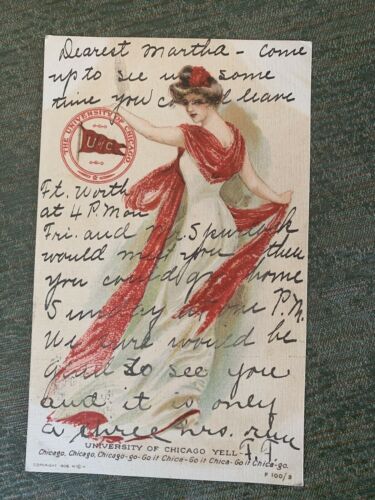 Dearest Martha - come
up to see us some
time you could leave
THE UNIVERSITY OF CHICAGO
U of C
Ft. Worth
at 4 P.M. on
Fri. and Mr. Spurlock
would meet you then
you could go home
Sunday at one P.M.
We sure would be
glad to see you
and it is only
a three hrs. run
UNIVERSITY OF CHICAGO YELL
Chicago, Chicago, Chicago-go-Go it Chica-Go it Chica-Go it Chica-go.
COPYRIGHT
F 100/3